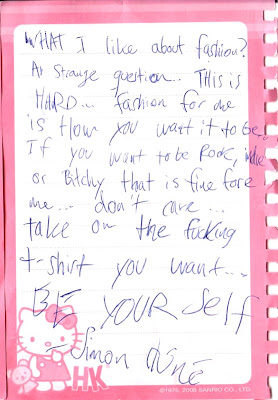 WHAT I like about fashion?
At strange question... THIS is
HARD... Fashion for me
is How you want it to be..
If you want to be Rock, indie
or Bitchy that is fine fore
me... don't care...
take on the fucking
t-shirt you want...
BE YOUR self
- Simon
HK
©1976, 2008 SANRIO CO., LTD.